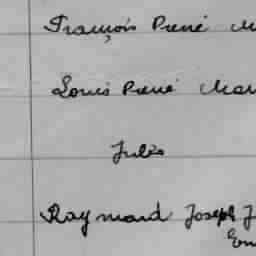 François René M
Louis René Mar
Jules
Raymond Joseph J
Em